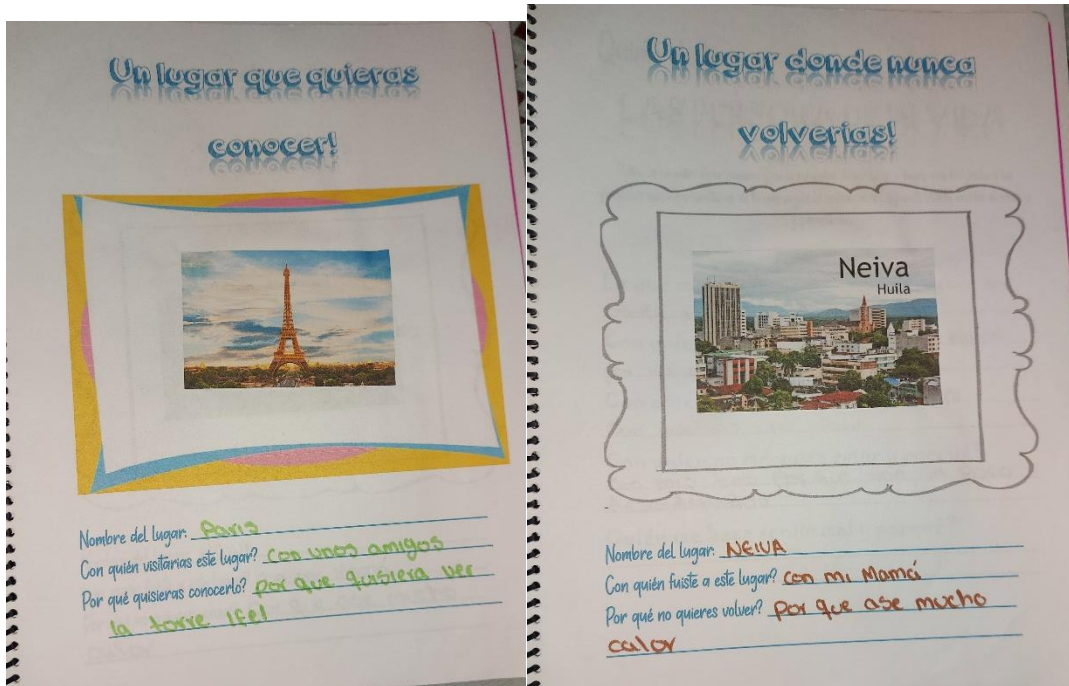 Un lugar que quieras
conocer!
Nombre del lugar: Paris
Con quién visitarias este lugar? con unos amigos
Por qué quisieras conocerlo? por que quisiera ver
la torre Ifel
Un lugar donde nunca
volverias!
Neiva
Huila
Nombre del lugar: NEIVA
Con quién fuiste a este lugar? con mi Mamá
Por qué no quieres volver? por que ase mucho
calor